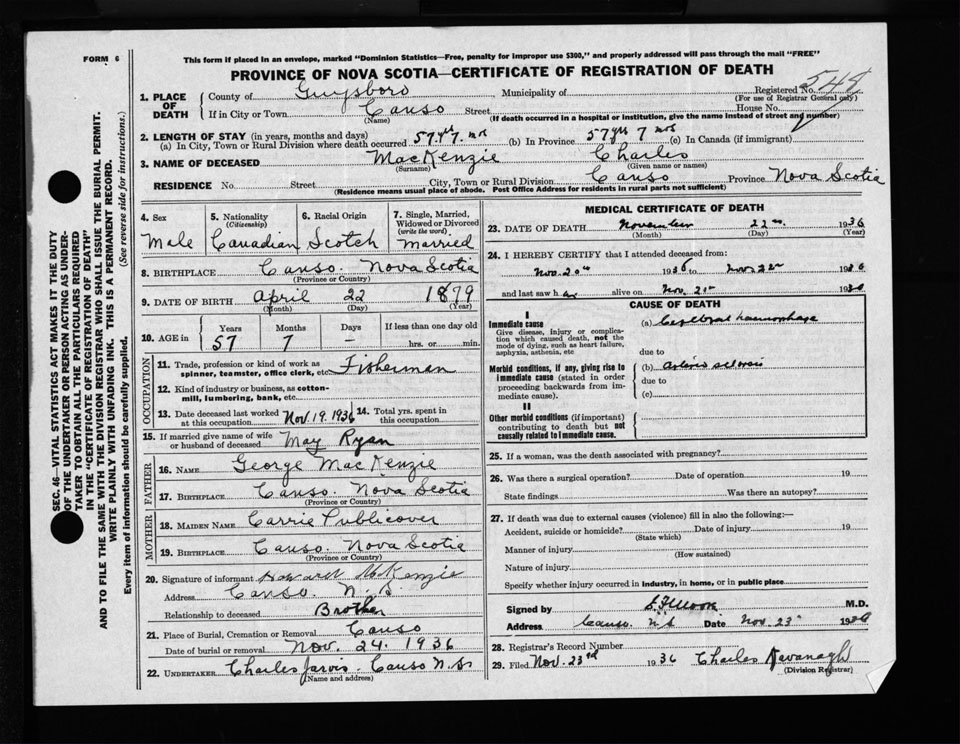 FORM 6
This form if placed in an envelope, marked "Dominion Statistics—Free, penalty for improper use $300," and properly addressed will pass through the mail "FREE"
PROVINCE OF NOVA SCOTIA—CERTIFICATE OF REGISTRATION OF DEATH
SEC. 46—VITAL STATISTICS ACT MAKES IT THE DUTY
OF THE UNDERTAKER OR PERSON ACTING AS UNDER-
TAKER TO OBTAIN ALL THE PARTICULARS REQUIRED
IN THE "CERTIFICATE OF REGISTRATION OF DEATH"
AND TO FILE THE SAME WITH THE DIVISION REGISTRAR WHO SHALL ISSUE THE BURIAL PERMIT.
WRITE PLAINLY WITH UNFADING INK. THIS IS A PERMANENT RECORD.
Every item of information should be carefully supplied. (See reverse side for instructions.)
1. PLACE OF DEATH
County of Guysboro, Municipality of Registered No. 548
(For use of Registrar General only)
If in City or Town Canso Street House No.
(Name) (If death occurred in a hospital or institution, give the name instead of street and number)
2. LENGTH OF STAY (in years, months and days)
(a) In City, Town or Rural Division where death occurred 57 yrs 7 mos (b) In Province 57 yrs 7 mos (c) In Canada (if immigrant)
3. NAME OF DECEASED MacKenzie Charles
(Surname) (Given name or names)
RESIDENCE No. Street City, Town or Rural Division Canso Province Nova Scotia
(Residence means usual place of abode. Post Office Address for residents in rural parts not sufficient)
4. Sex 5. Nationality (Citizenship) 6. Racial Origin 7. Single, Married, Widowed or Divorced (write the word)
Male Canadian Scotch Married
8. BIRTHPLACE Canso Nova Scotia
(Province or Country)
9. DATE OF BIRTH April 22 1879
(Month) (Day) (Year)
10. AGE in Years Months Days If less than one day old
57 7 – hrs. or min.
OCCUPATION
11. Trade, profession or kind of work as spinner, teamster, office clerk, etc. Fisherman
12. Kind of industry or business, as cotton-mill, lumbering, bank, etc.
13. Date deceased last worked at this occupation Nov. 19. 1936 14. Total yrs. spent in this occupation
15. If married give name of wife or husband of deceased May Ryan
FATHER
16. NAME George MacKenzie
17. BIRTHPLACE Canso Nova Scotia
(Province or Country)
MOTHER
18. MAIDEN NAME Carrie Publicover
19. BIRTHPLACE Canso. Nova Scotia
(Province or Country)
20. Signature of informant Howard McKenzie
Address Canso. N.S.
Relationship to deceased Brother
21. Place of Burial, Cremation or Removal Canso
Date of burial or removal Nov. 24. 1936
22. UNDERTAKER Charles Jarvis. Canso N.S.
(Name and address)
MEDICAL CERTIFICATE OF DEATH
23. DATE OF DEATH November 22nd 1936
(Month) (Day) (Year)
24. I HEREBY CERTIFY that I attended deceased from:
Nov. 20th 1936 to Nov. 22nd 1936
and last saw h alive on Nov. 1936
CAUSE OF DEATH
I
Immediate cause
Give disease, injury or complication which caused death, not the mode of dying, such as heart failure, asphyxia, asthenia, etc
(a) Cerebral haemorrhage
due to
Morbid conditions, if any, giving rise to immediate cause (stated in order proceeding backwards from immediate cause).
(b) arterio sclerosis
due to
(c)
II
Other morbid conditions (if important) contributing to death but not causally related to immediate cause.
25. If a woman, was the death associated with pregnancy?
26. Was there a surgical operation? Date of operation 19
State findings Was there an autopsy?
27. If death was due to external causes (violence) fill in also the following:—
Accident, suicide or homicide? Date of injury 19
(State which)
Manner of injury
(How sustained)
Nature of injury
Specify whether injury occurred in industry, in home, or in public place
Signed by M.D.
Address Canso. N.S. Date Nov. 23 1936
28. Registrar's Record Number
29. Filed Nov. 23rd 1936 Charles Kavanagh
(Division Registrar)